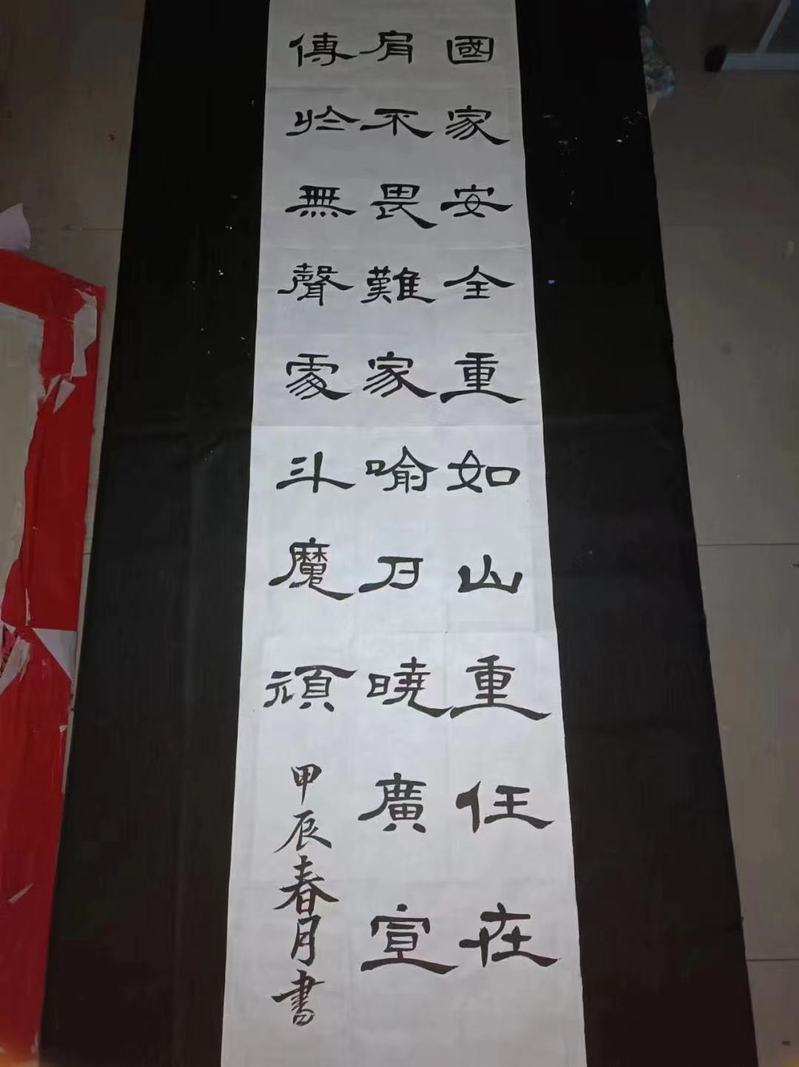 國家安全重如山重任在
肩不畏難家喻戶曉廣宣
傳於無聲處斗魔頑
甲辰春月書